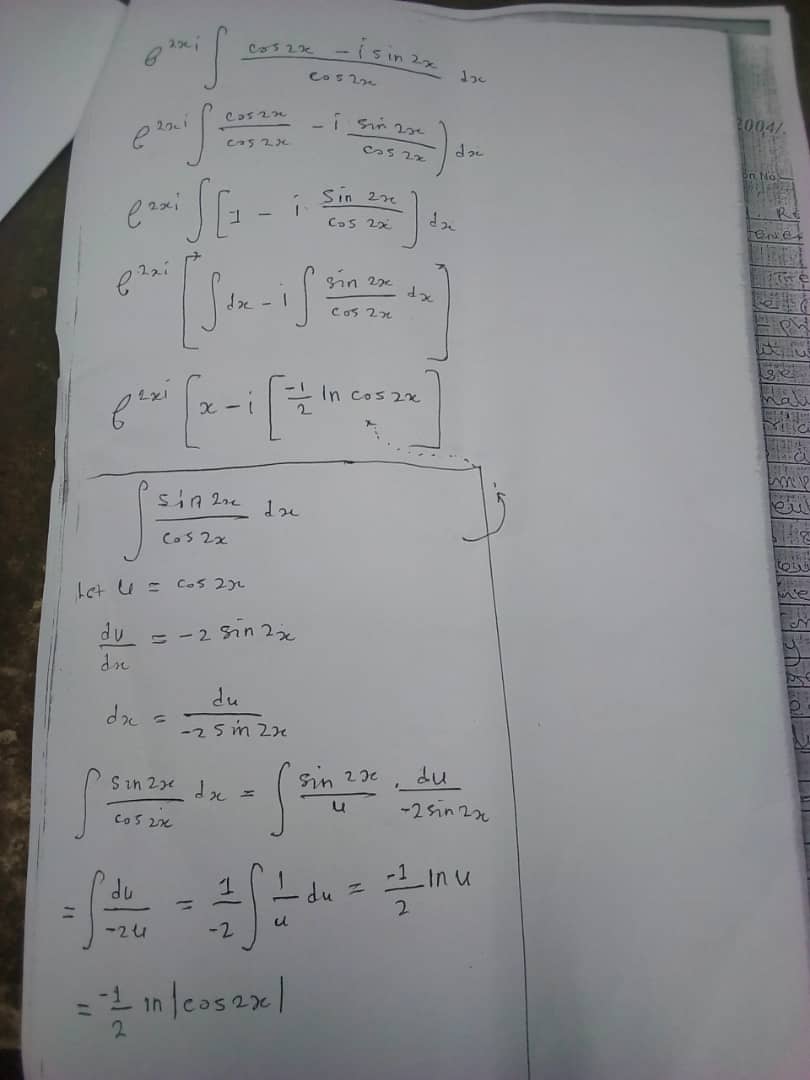 e^{2xi} ∫ (cos 2x - i sin 2x)/(cos 2x) dx
e^{2xi} ∫ (cos 2x)/(cos 2x) - i (sin 2x)/(cos 2x)) dx
e^{2xi} ∫ [1 - i. (sin 2x)/(cos 2x)] dx
e^{2xi} [∫ dx - i ∫ (sin 2x)/(cos 2x) dx]
e^{2xi} [x - i [(-1)/2 ln cos 2x]
∫ (sin 2x)/(cos 2x) dx
Let u = cos 2x
du/dx = -2 sin 2x
dx = du/(-2 sin 2x)
∫ (sin 2x)/(cos 2x) dx = ∫ (sin 2x)/u . du/(-2 sin 2x)
= ∫ du/(-2u) = 1/(-2) ∫ 1/u du = (-1)/2 ln u
= (-1)/2 ln |cos 2x|
2004/